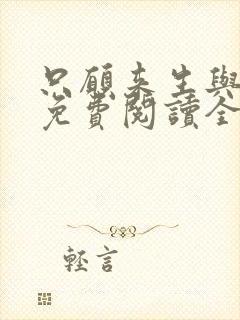 只願來生與
免費閱讀全
輕言